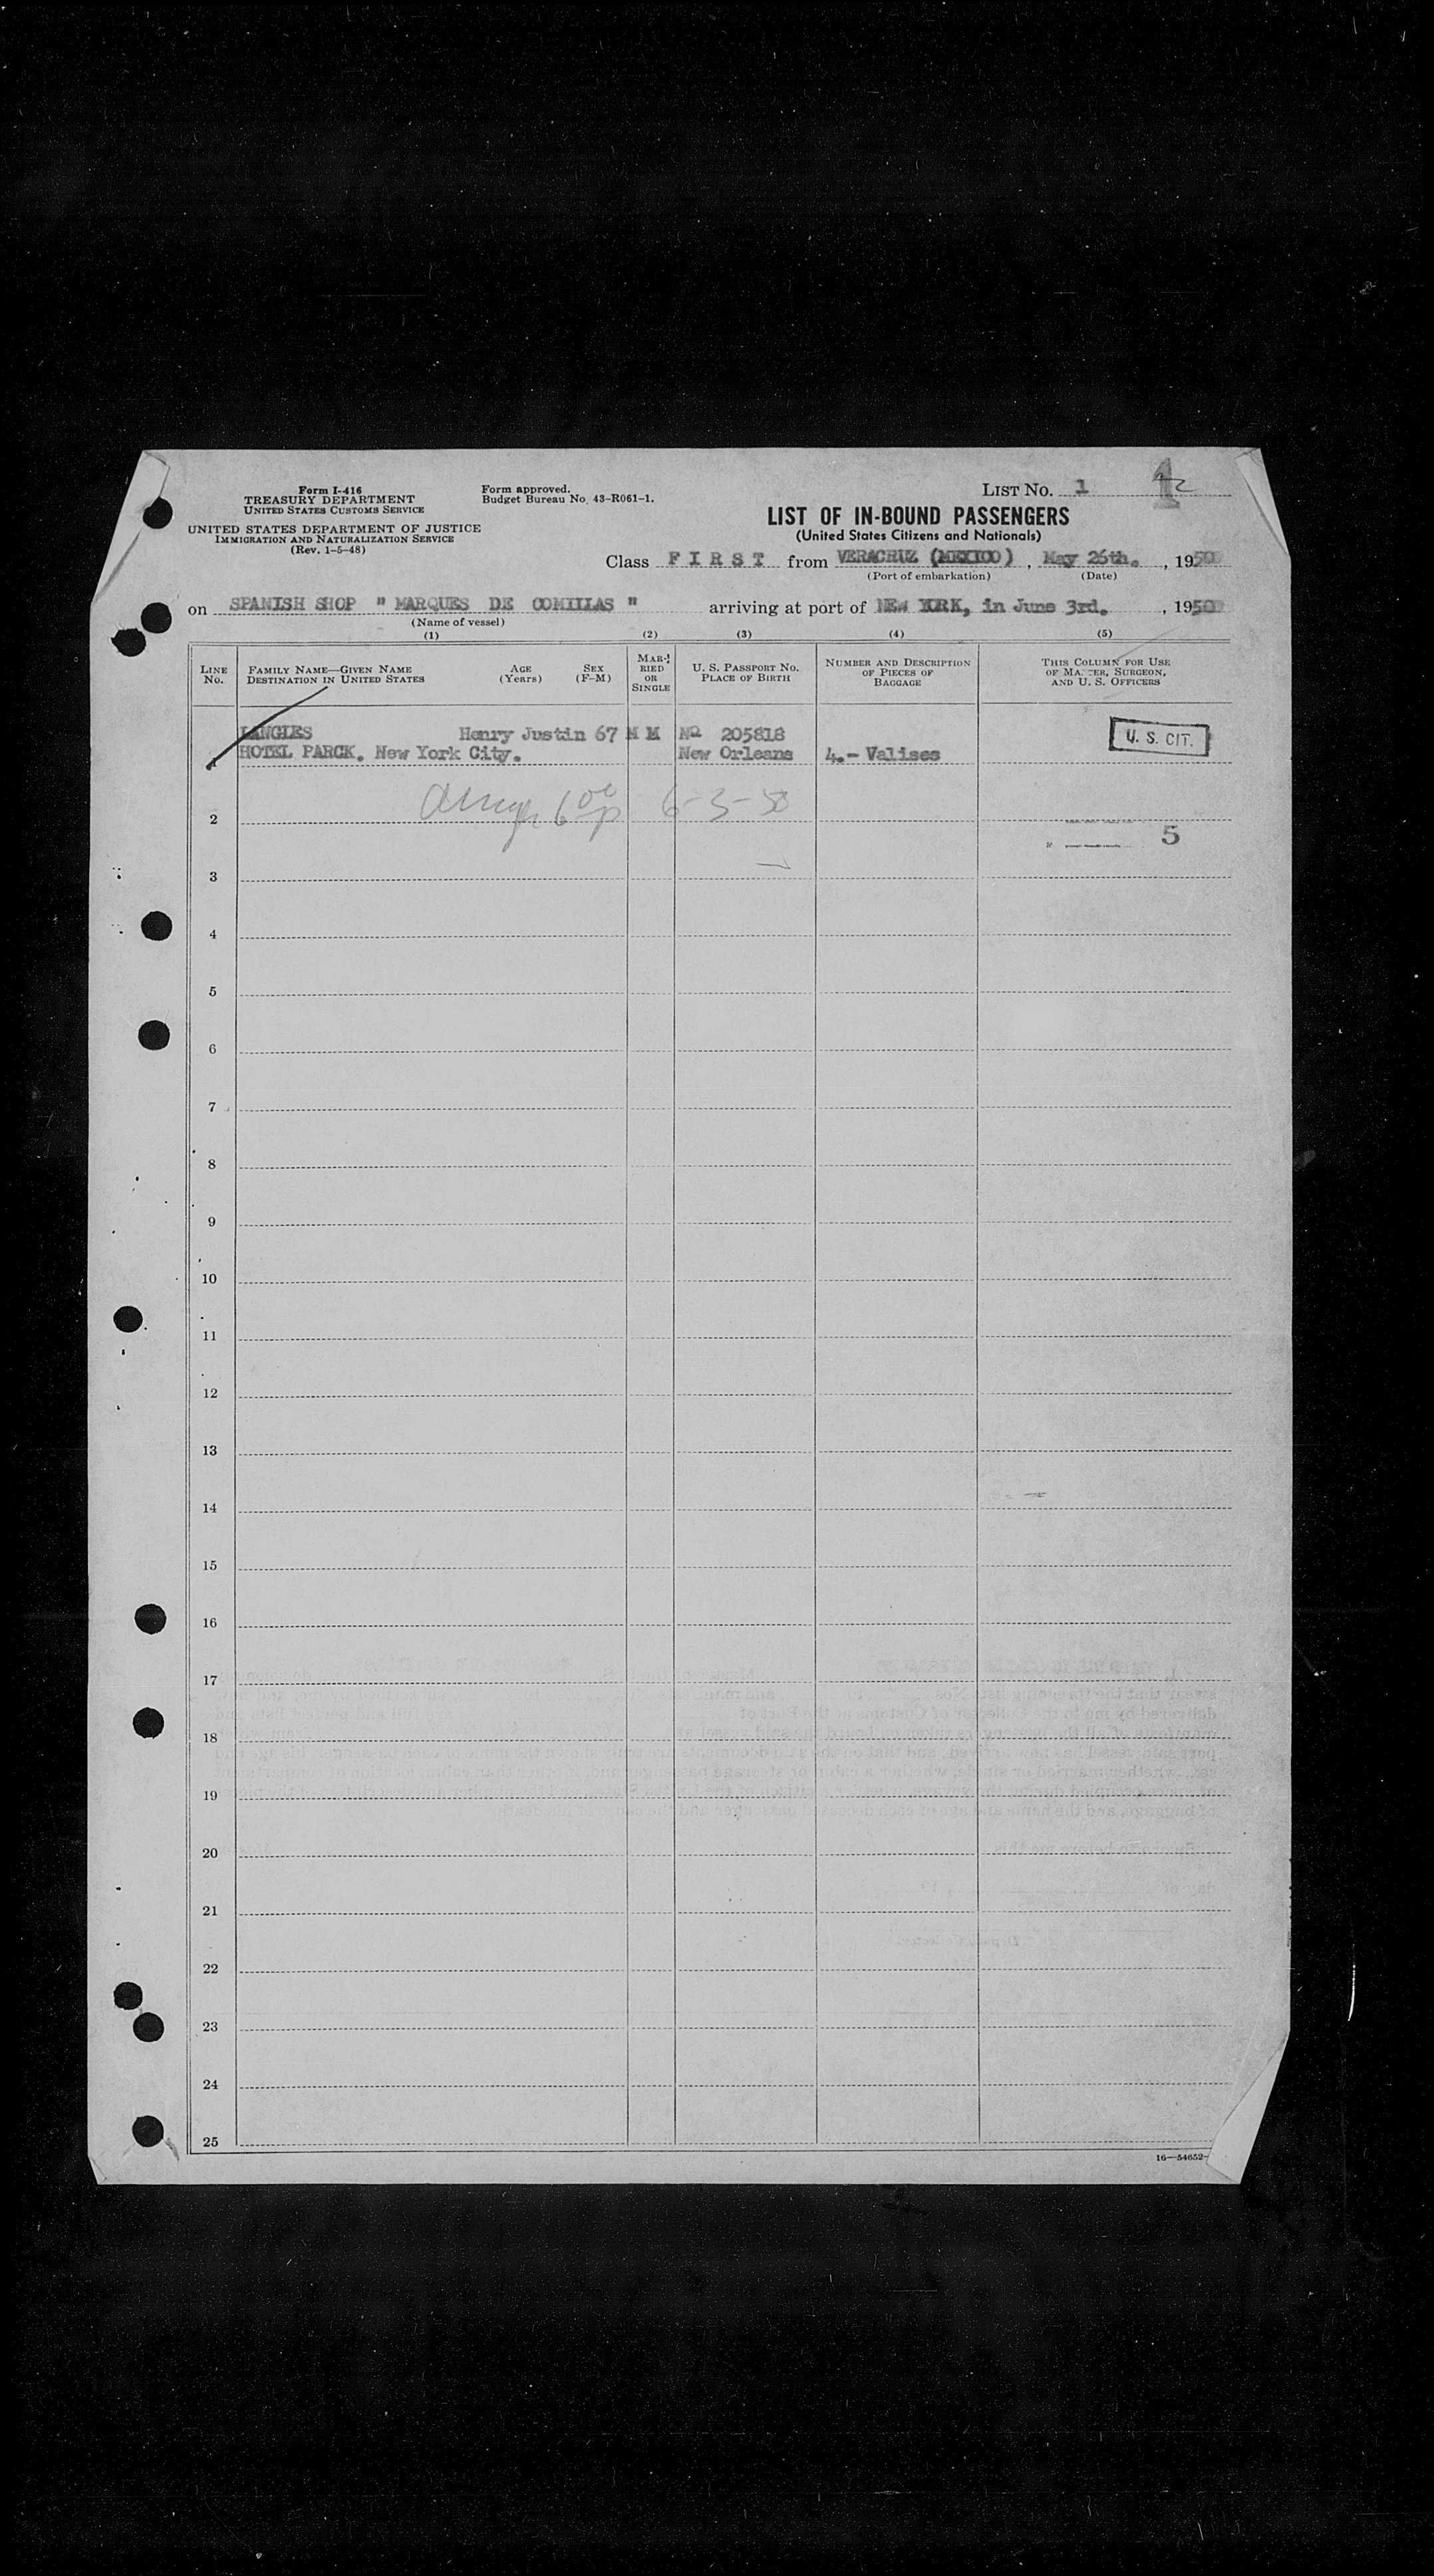 Form I-416
TREASURY DEPARTMENT
UNITED STATES CUSTOMS SERVICE
UNITED STATES DEPARTMENT OF JUSTICE
IMMIGRATION AND NATURALIZATION SERVICE
(Rev. 1-5-48)
Form approved.
Budget Bureau No. 43-R061-1.
LIST NO. 1
LIST OF IN-BOUND PASSENGERS
(United States Citizens and Nationals)
Class F I R S T from VERACRUZ (MEXICO) , May 26th. , 1950
(Port of embarkation) (Date)
on SPANISH SHOP " MARQUES DE COMILLAS " arriving at port of NEW YORK, in June 3rd. , 1950
(Name of vessel)
(1) (2) (3) (4) (5)
LINE NO.
FAMILY NAME—GIVEN NAME
DESTINATION IN UNITED STATES
AGE (Years)
SEX (F-M)
MARRIED OR SINGLE
U. S. PASSPORT NO.
PLACE OF BIRTH
NUMBER AND DESCRIPTION
OF PIECES OF
BAGGAGE
THIS COLUMN FOR USE
OF MASTER, SURGEON,
AND U. S. OFFICERS
LANGLES Henry Justin 67 M M Nº 205818
U. S. CIT.
1 HOTEL PARCK. New York City. New Orleans 4.- Valises
6-3-50
2
5
3
4
5
6
7
8
9
10
11
12
13
14
15
16
17
18
19
20
21
22
23
24
25
16—54652-